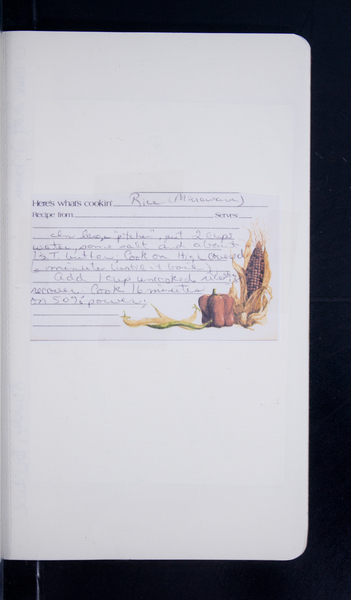 Here's what's cookin' Rice (Microwave)
Recipe from Serves
In large "pitcher", put 2 cups
water, some salt and about
T. butter, Cook on High covered
minutes (until it boils)
Add 1 cup uncooked rice
recover. Cook 16 minutes
on 50% power.